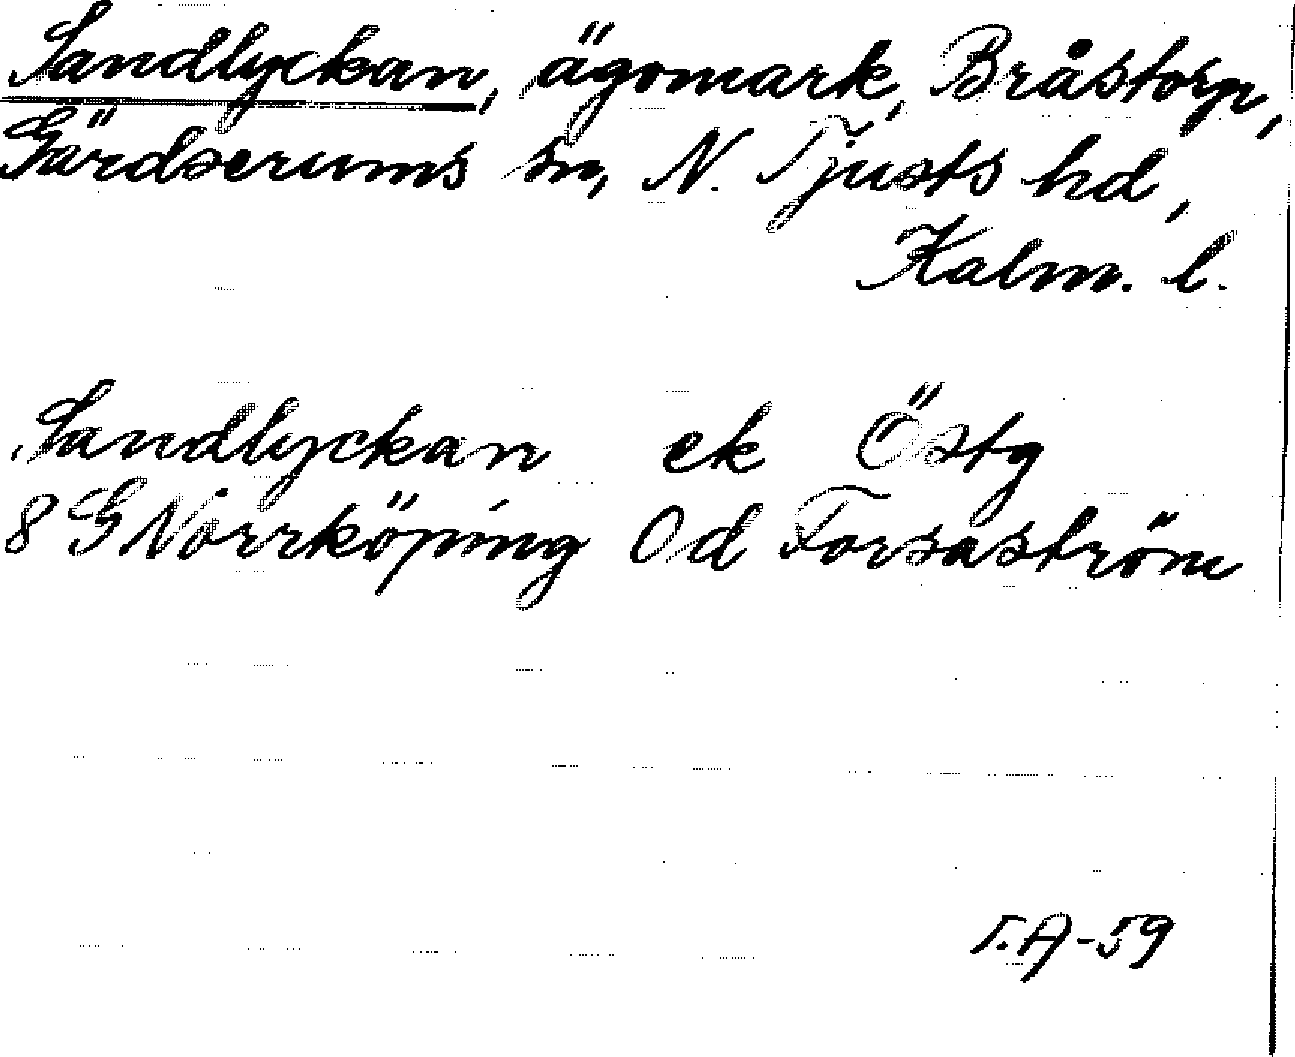 Sandlyckan, ägomark, Bråstorp,
Gärdserums sn, N. Tjusts hd,
Kalm. l.
Sandlyckan ek Östg
8 G Norrköping 0 d Forsaström
I.A-59